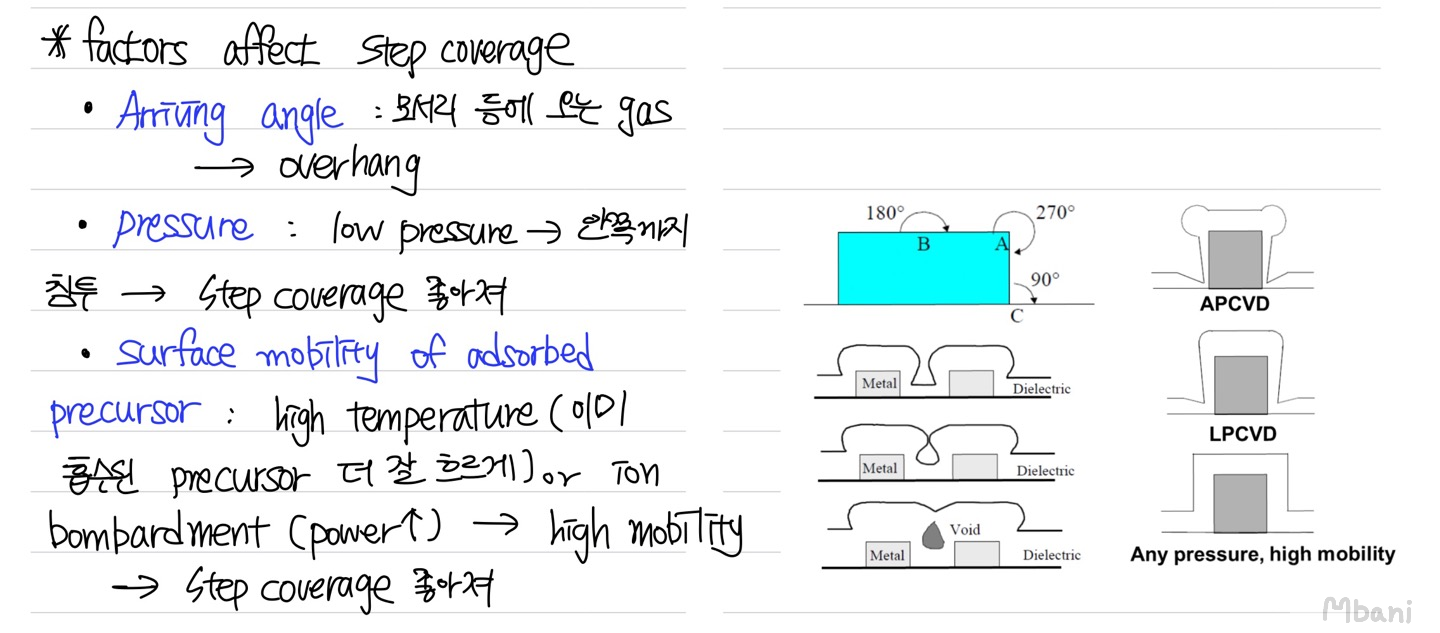 * factors affect step coverage
• Arriving angle : 모서리 등에 오는 gas
→ overhang
• pressure : low pressure → 안쪽까지
침투 → step coverage 좋아져
• surface mobility of adsorbed
precursor : high temperature (이미
흡수된 precursor 더 잘 흐르게) or ion
bombardment (power↑) → high mobility
→ step coverage 좋아져
180° 270°
B A
90°
C
APCVD
Metal Dielectric
LPCVD
Metal Dielectric
Void
Metal Dielectric
Any pressure, high mobility
Mbani